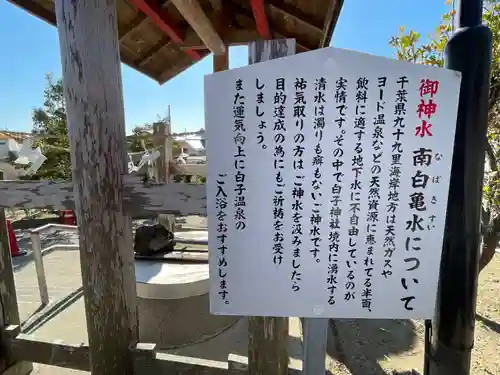 御神水 南白亀水について
なばきすい
千葉県九十九里海岸地方は天然ガスや
ヨード温泉などの天然資源に恵まれてる半面、
飲料に適する地下水に不自由しているのが
実情です。その中で白子神社境内に湧水する
清水は濁りも癖もないご神水です。
祐気取りの方は、ご神水を汲みましたら
目的達成の為にもご祈祷をお受け
しましょう。
また運気向上に白子温泉の
ご入浴をおすすめします。